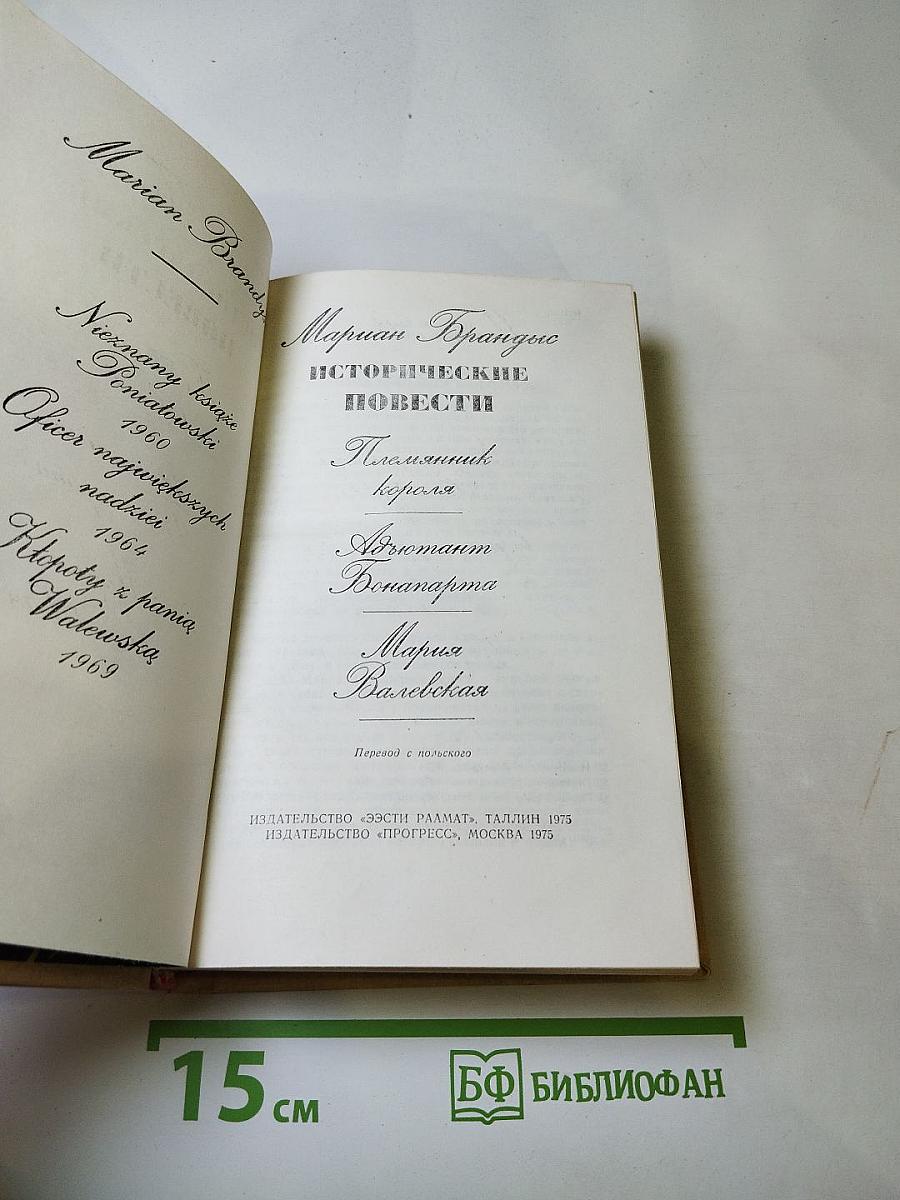 Marian Brandys
Nieznany książę
Poniatowski
1960
Oficer największych
nadziei
1964
Kłopoty z panią
Walewską
1969
Мариан Брандыс
ИСТОРИЧЕСКИЕ
ПОВЕСТИ
Племянник
короля
Адъютант
Бонапарта
Мария
Валевская
Перевод с польского
ИЗДАТЕЛЬСТВО «ЭЭСТИ РААМАТ», ТАЛЛИН 1975
ИЗДАТЕЛЬСТВО «ПРОГРЕСС», МОСКВА 1975
15 см
БФ БИБЛИОФАН